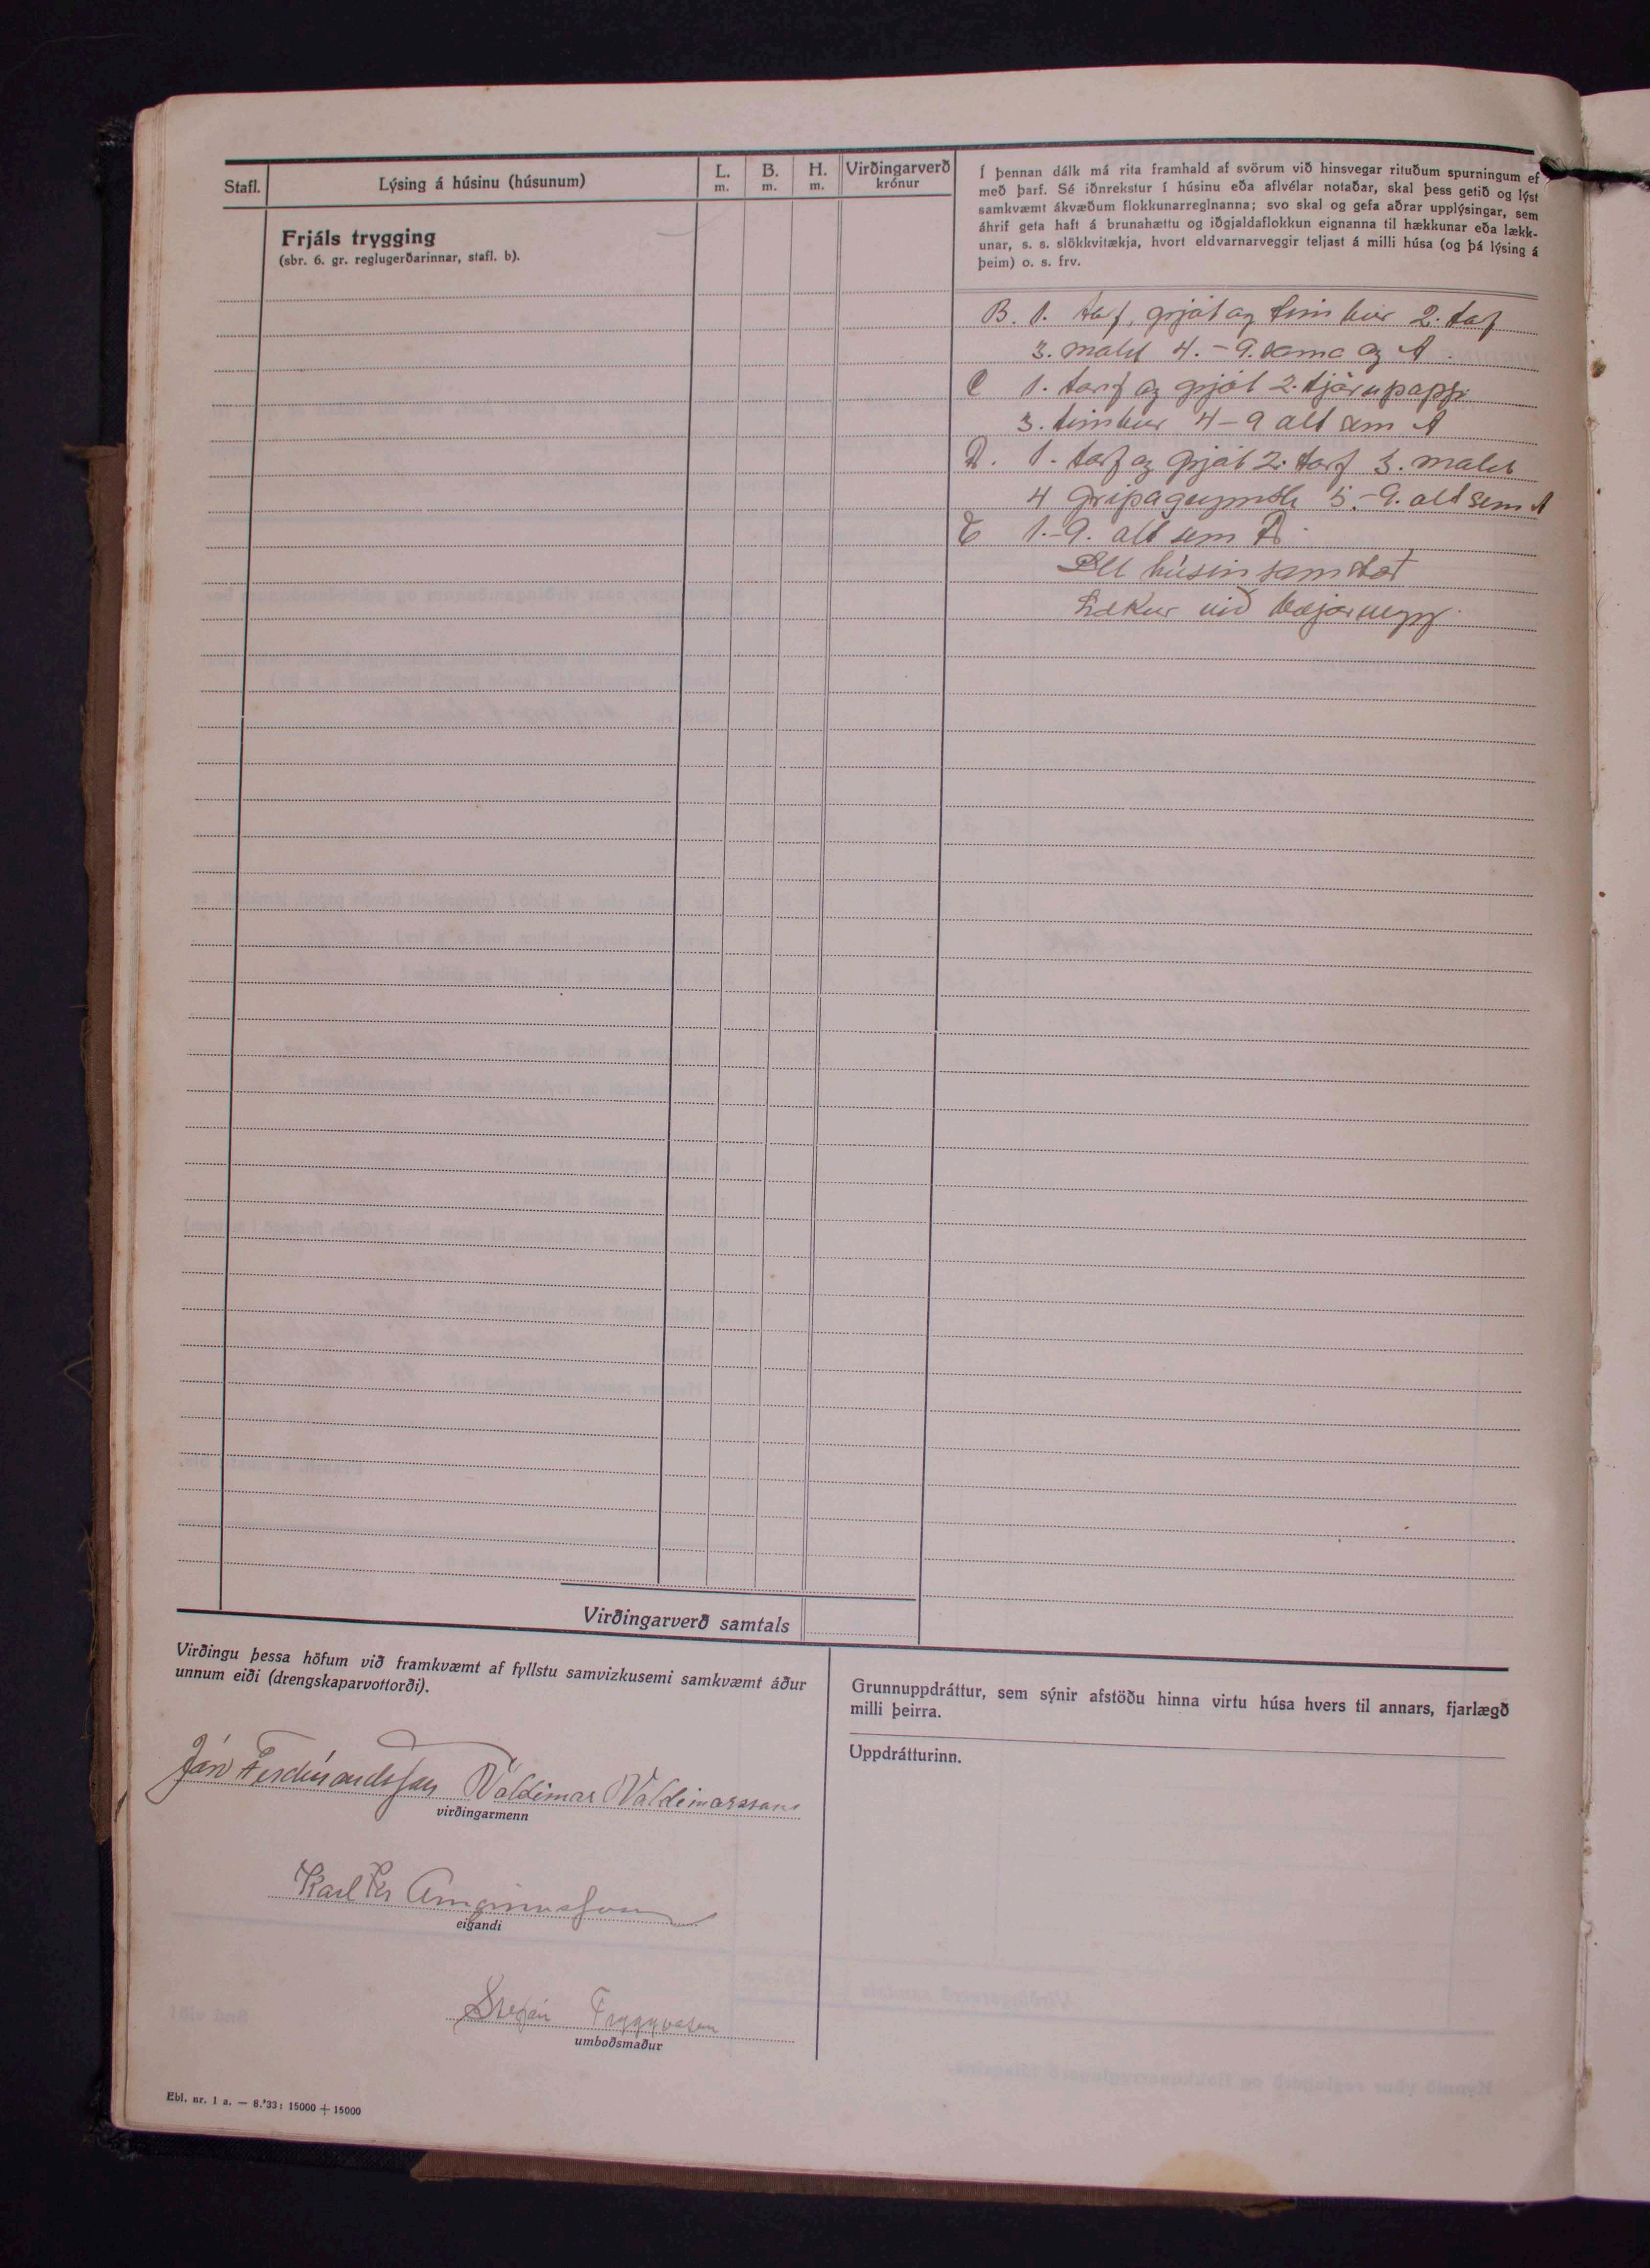 Stafl.
Lýsing á húsinu (húsunum)
L.
m.
B.
m.
H.
m.
Virðingarverð
krónur
Frjáls trygging
(sbr. 6. gr. reglugerðarinnar, stafl. b).
Í þennan dálk má rita framhald af svörum við hinsvegar rituðum spurningum ef
með þarf. Sé iðnrekstur í húsinu eða aflvélar notaðar, skal þess getið og lýst
samkvæmt ákvæðum flokkunarreglnanna; svo skal og gefa aðrar upplýsingar, sem
áhrif geta haft á brunahættu og iðgjaldaflokkun eignanna til hækkunar eða lækk-
unar, s. s. slökkvitækja, hvort eldvarnarveggir teljast á milli húsa (og þá lýsing á
þeim) o. s. frv.
B. 1. torf, grjót og timbur 2. torf
3. mold 4.-9. sama og A.
C 1. torf og grjót 2. tjörupappi
3. timbur 4-9 alt sem A
D. 1. torf og grjót 2. torf 3. mold
4 gripageymsla 5.-9. alt sem A
E 1.-9. alt sem D.
Öll húsin samstæð
Lækur við bæjarvegg.
Virðingarverð samtals
Virðingu þessa höfum við framkvæmt af fyllstu samvizkusemi samkvæmt áður
unnum eiði (drengskaparvottorði).
Jón Ferdínandsson Valdimar Valdimarsson
virðingarmenn
Karl Kr Arngrímsson
eigandi
Stefán Tryggvason
umboðsmaður
Grunnuppdráttur, sem sýnir afstöðu hinna virtu húsa hvers til annars, fjarlægð
milli þeirra.
Uppdrátturinn.
Ebl. nr. 1 a. — 8.'33: 15000 + 15000